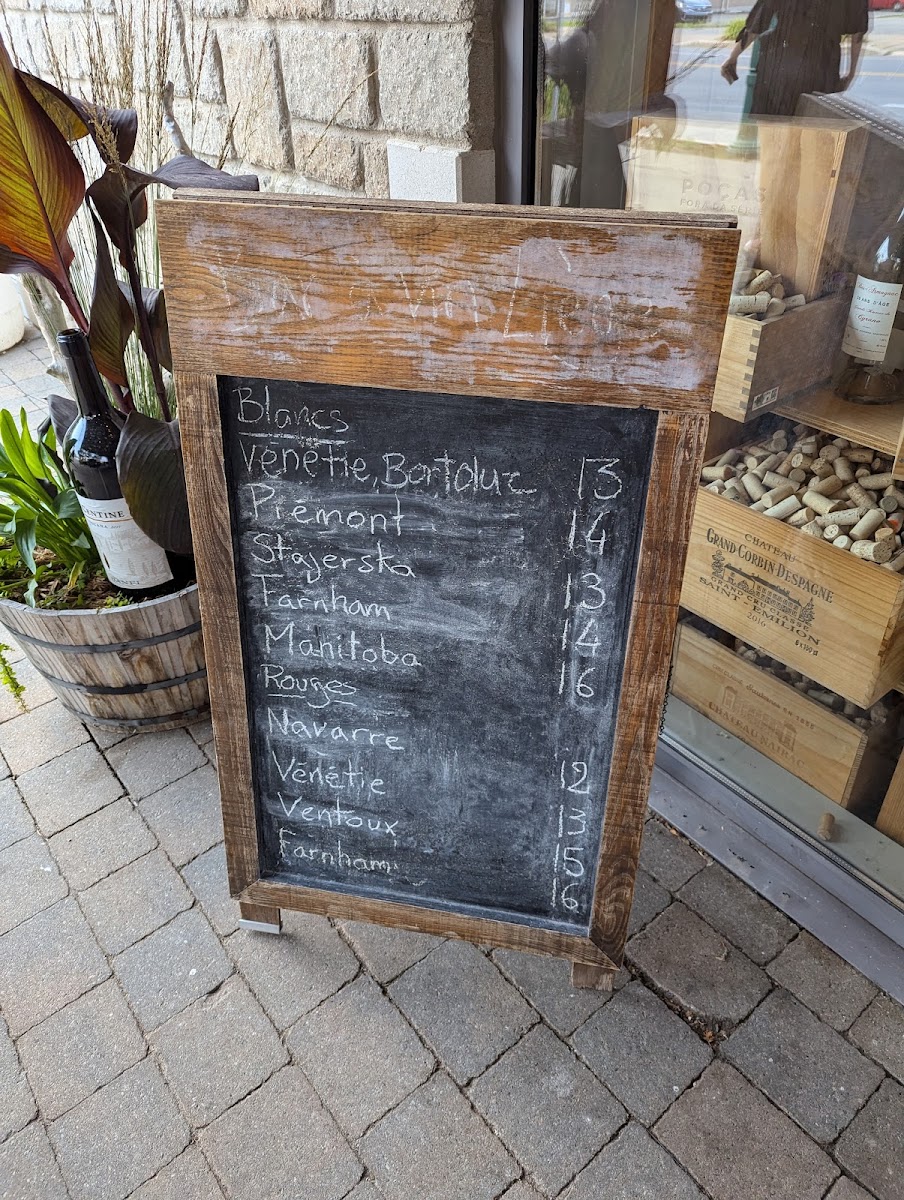 Bar à Vin Liège
Blancs
Vénétie, Bortoluz 13
Piémont 14
Stajerska 13
Farnham 14
Manitoba 16
Rouges
Navarre 12
Vénétie 13
Ventoux 15
Farnham 16
ENTINE
POCAS
CHATEAU
GRAND CORBIN DESPAGNE
GRAND CRU CLASSÉ
SAINT-EMILION
2016